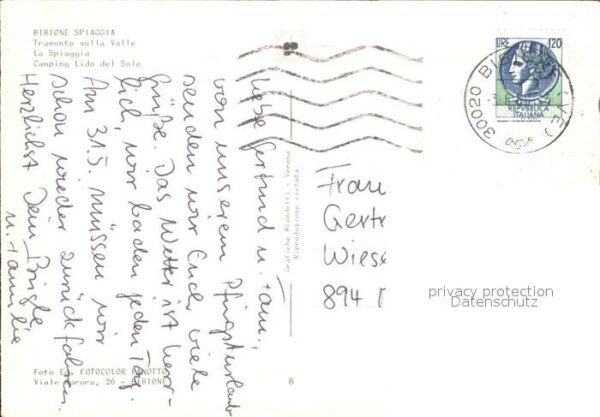 BIBIONE SPIAGGIA
Tramonto sulla Valle
La Spiaggia
Camping Lido del Sole
Liebe Gertrud u. Fam.!
von unserem Pfingsturlaub
senden wir Euch viele
Grüße. Das Wetter ist herr-
lich, wir baden jeden Tag.
Am 31.5. müssen wir
schon wieder zurückfahren.
Herzlichst Deine
u. Familie
Foto Ed. FOTOCOLOR
Viale Aurora, 26 - BIBIONE
8
Grafiche Biondetti - Verona
Riproduzione vietata
LIRE 120
REPVBBLICA
ITALIANA
30020 BI (VE)
Frau
Gert
Wiese
894
privacy protection
Datenschutz